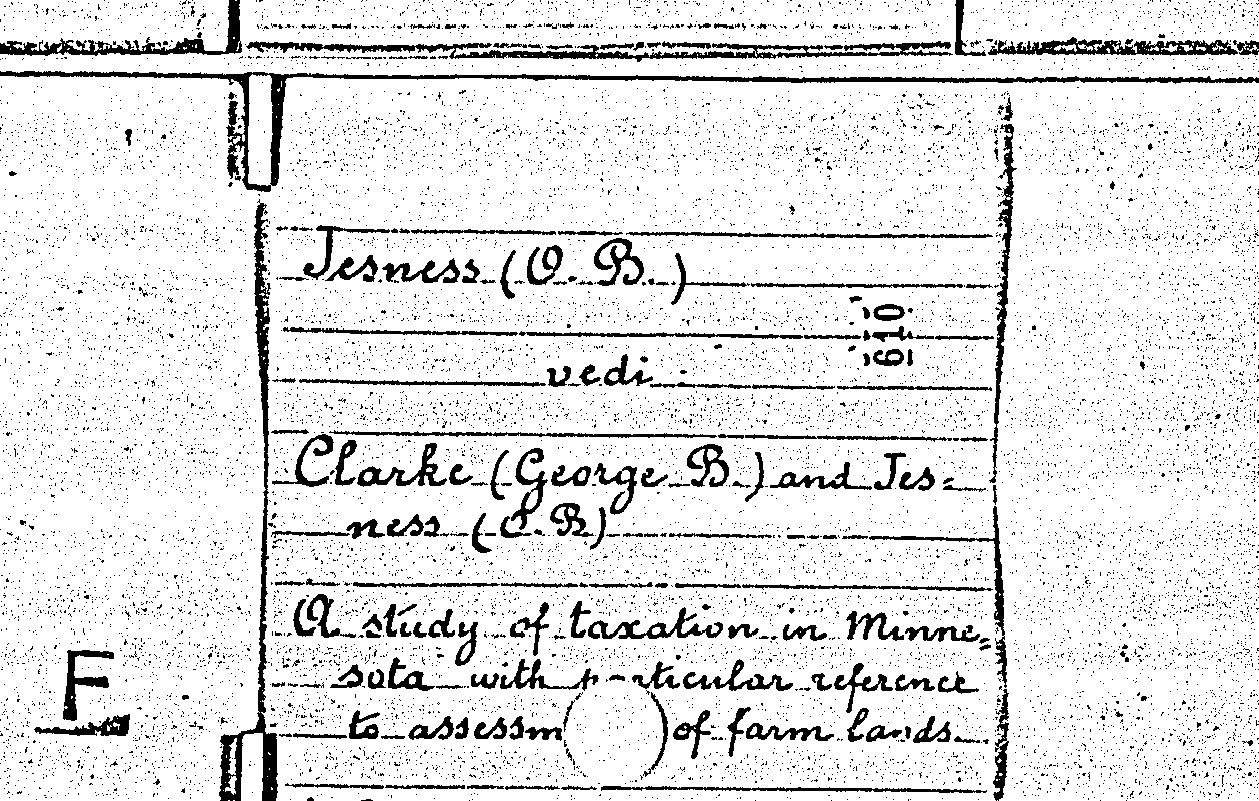 Jesness (O. B.)
610
vedi:
Clarke (George B.) and Jes=
ness (O. B)
A study of taxation in Minne=
sota with particular reference
to assessm of farm lands.
F